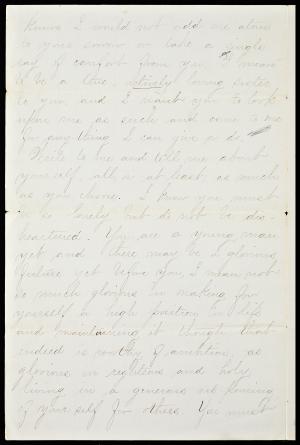 know I would not add one atom
to your sorrow or take a single
ray of comfort from you. I mean
to be a true, actively loving sister
to you, and I want you to look
upon me as such and come to me
for any thing I can give or do.
Write to me and tell me about
yourself, all, or at least as much
as you choose. I know you must
be so lonely but do not be dis-
heartened. You are a young man
yet and there may be a glorious
future yet before you, I mean not
so much glorious in making for
yourself a high position in life
and maintaining it though that
indeed is worthy of ambition, as
glorious in righteous and holy
living in a generous
of yourself for others. You must